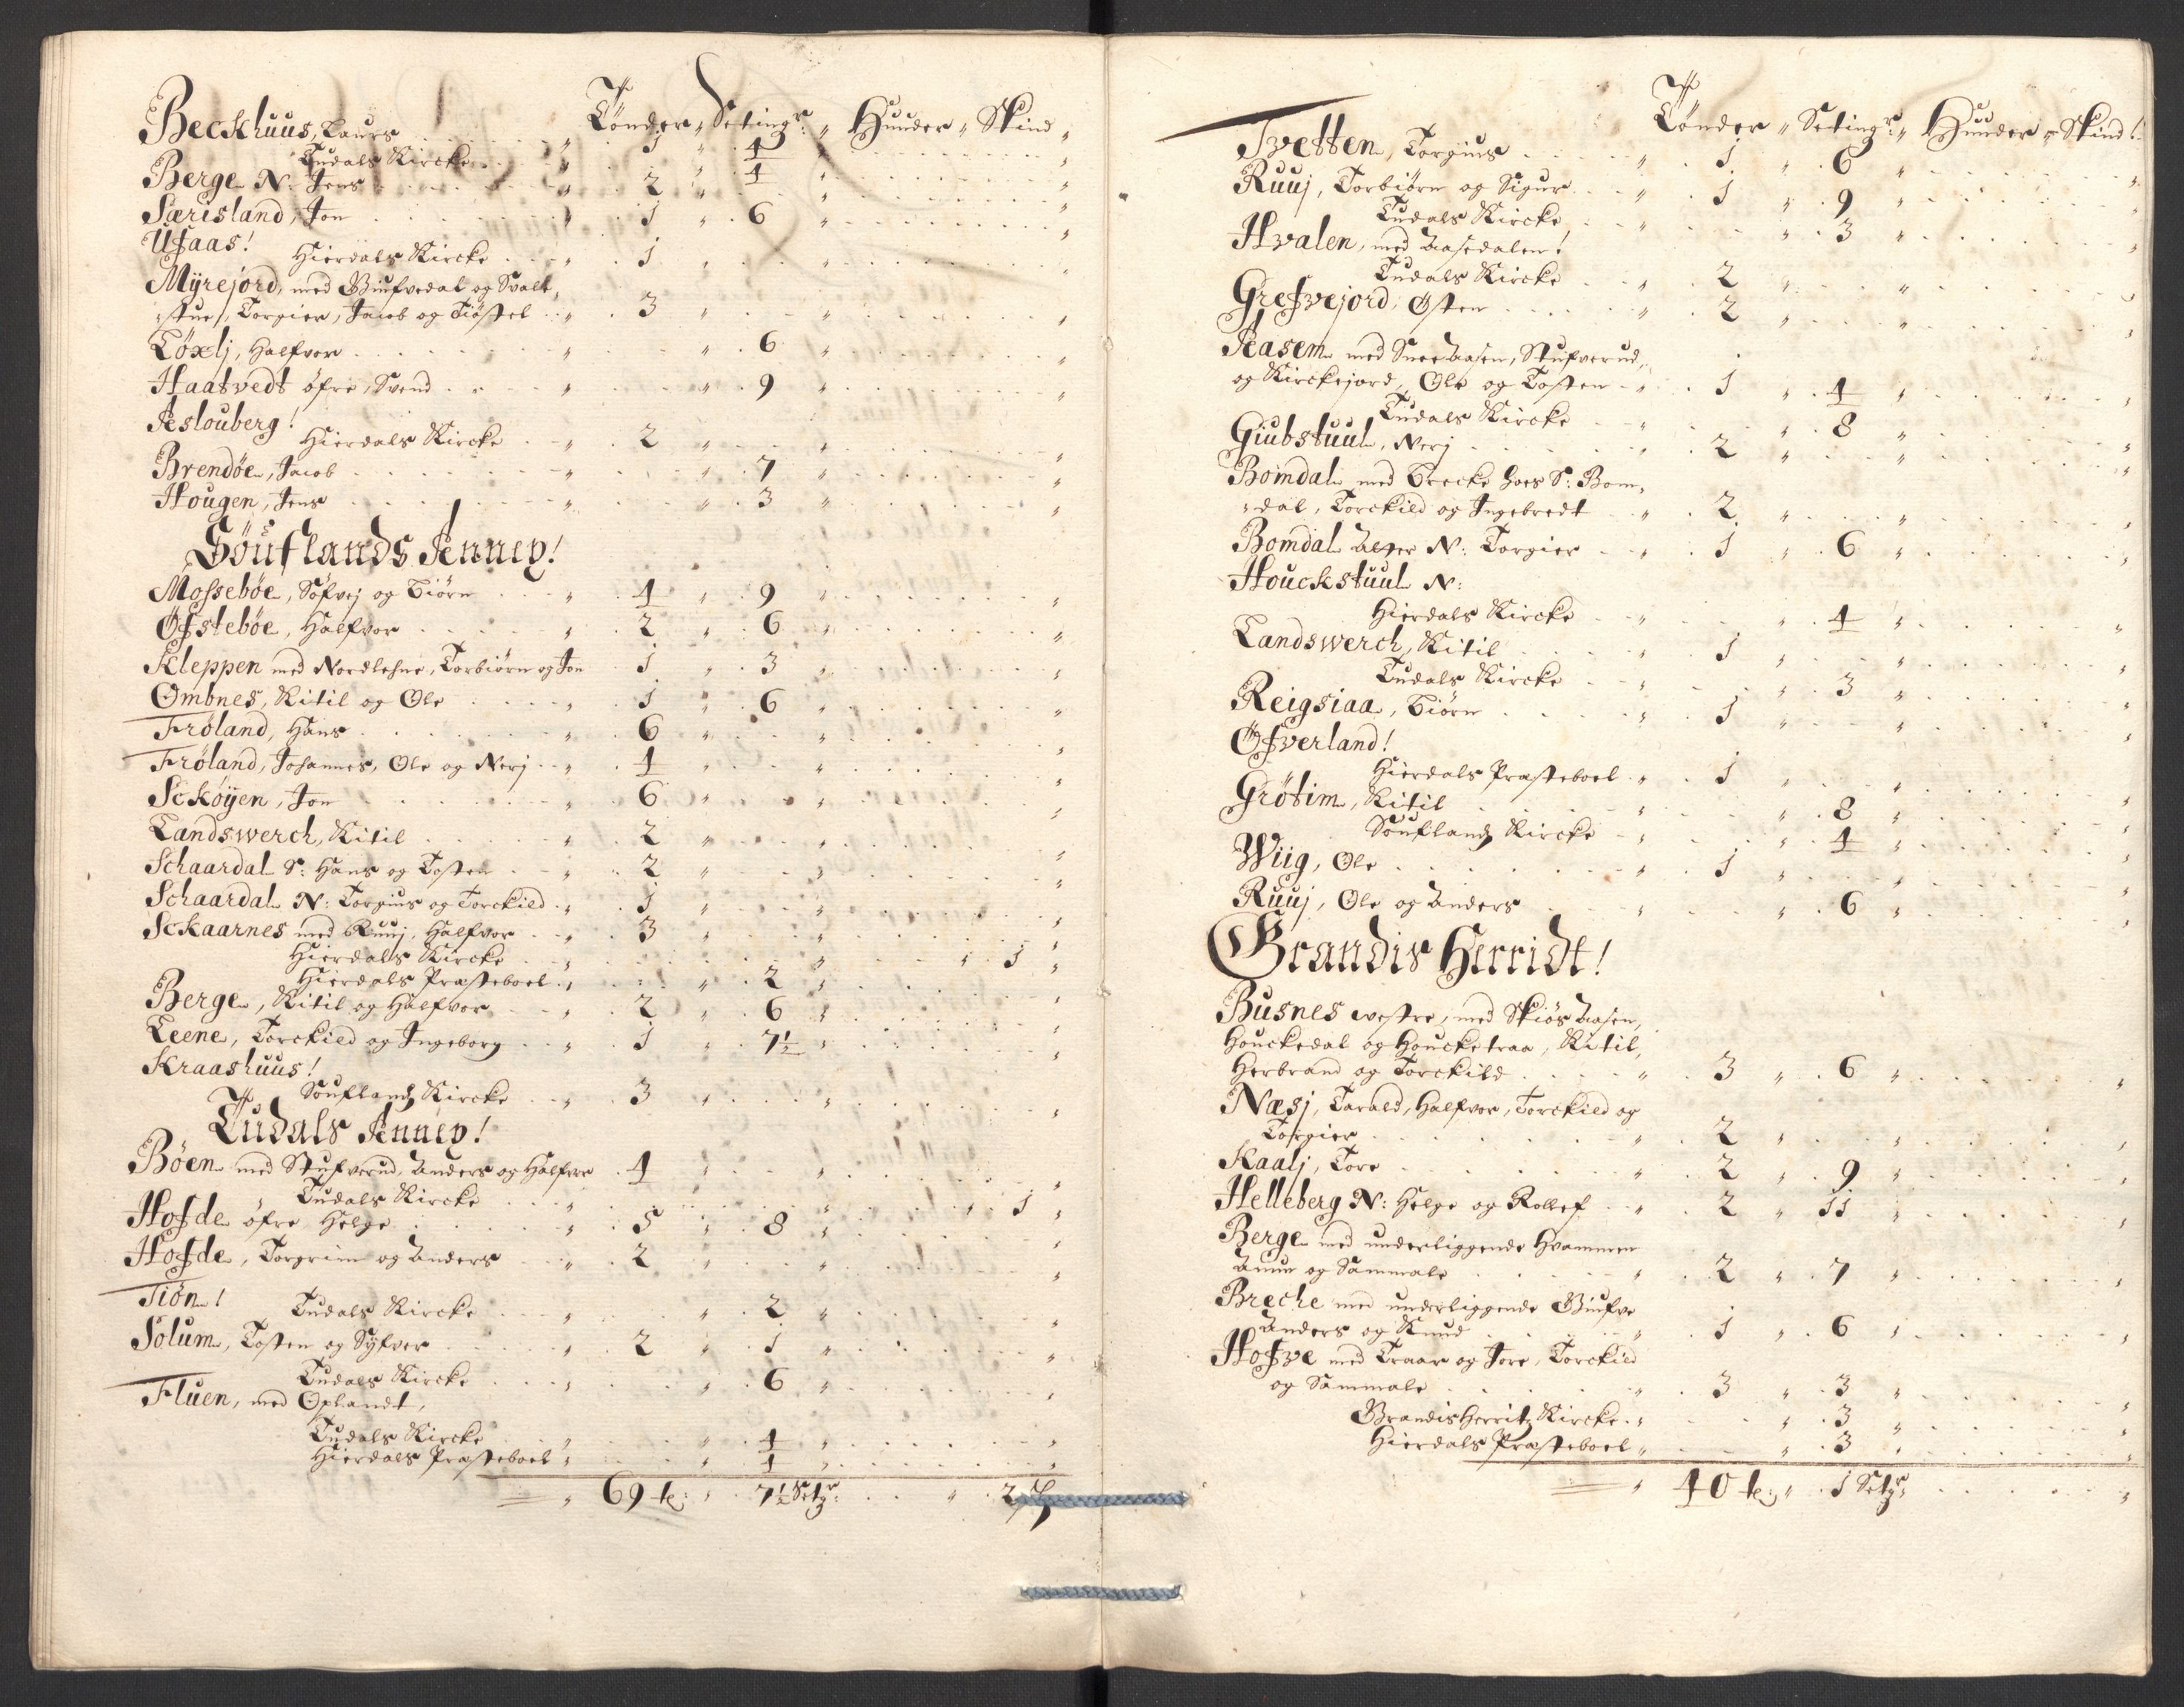 Tønder Setingr Huuder Skind
Beckhuus, Laurs 1 4
Tudals Kircke 4
Berge N: Jens 2
Særisland, Jon 1 6
Ufaas!
Hierdals Kircke 1
Myrejord, med Giufvedal og Svalt
stue, Torgier, Jacob og Kiøstel 3
Løxlj, Halfvor 6
Haatvedt øfre, Svend 9
Jeslouberg!
Hierdals Kircke 2
Brendøe, Jacob 7
Hougen, Jens 3
Søuflands Anney!
Mossebøe, Søfvej og Biørn 4 9
Øfstebøe, Halfvor 2 6
Kleppen med Nordlehne, Torbiørn og Jon 1 3
Ombnes, Kitil og Ole 1 6
Frøland, Hans 6
Frøland, Johannes, Ole og Nerj 4
Sckøyen, Jon 6
Landswerch, Kitil 2
Schaardal S: Hans og Tosten 2
Schaardal N: Torgius og Torckild 1
Sckaarnes med Ruuj, Halfvor 3
Hierdals Kircke 1
Hierdals Præsteboel 2
Berge, Kitil og Halfvor 2 6
Leene, Torckild og Ingeborg 1 7½
Kraashuus!
Søuflands Kircke 3
Tudals Anney!
Bøen med Stufverud, Anders og Halfvor 4
Tudals Kircke 1
Hofde øfre Helge 5 8
Hofde, Torgrim og Anders 2
Tiøn!
Tudals Kircke 2
Solum, Tosten og Syfver 2 1
Tudals Kircke 6
Fluen, med Oplandt,
Tudals Kircke 4
Hierdals Præsteboel 4
69 te: 7½ Setgr: 2
Tønder Setingr Huuder Skind!
Tvetten, Torgius 1 6
Ruuj, Torbiørn og Sigur 1 9
Tudals Kircke 3
Hvalen, med Aasedalen!
Tudals Kircke 2
Grefvejord, Østen 2
Aasem med Snee Aasen, Stufverud,
og Kirckejord, Ole og Tosten 1 4
Tudals Kircke 8
Giubstuul, Nerj 2
Bomdal med Brecke hos S: Bom,
dal, Torckild og Ingebredt 2
Bomdal N: Torgier 1 6
Houckstuul N:
Hierdals Kircke 4
Landswerch, Kitil 1
Tudals Kircke 3
Reigsiaa, Biørn 1
Øfverland!
Hierdals Præsteboel 1
Grøtim, Kitil 8
Søuflands Kircke 4
Wiig, Ole 1
Ruuj, Ole og Anders 6
Grandis Herridt!
Busnes vestre, med Skiøs Aasen,
Houckedal og Houcketraa, Kitil,
Herbrand og Torckild 3 6
Næsj, Tarald, Halfvor, Torckild og
Torgier 2
Kaalj, Tore 2 9
Helleberg N: Helge og Rollef 2 11
Berge med underliggende Hvammen
Amun og Sammale 2 7
Breche med underliggende Giufve
Anders og Knud 1 6
Hofve med Traar og Jore, Torckild
og Sammale 3 3
Grandisherrits Kircke 3
Hierdals Præsteboel 3
40 te: 1 Setgr: